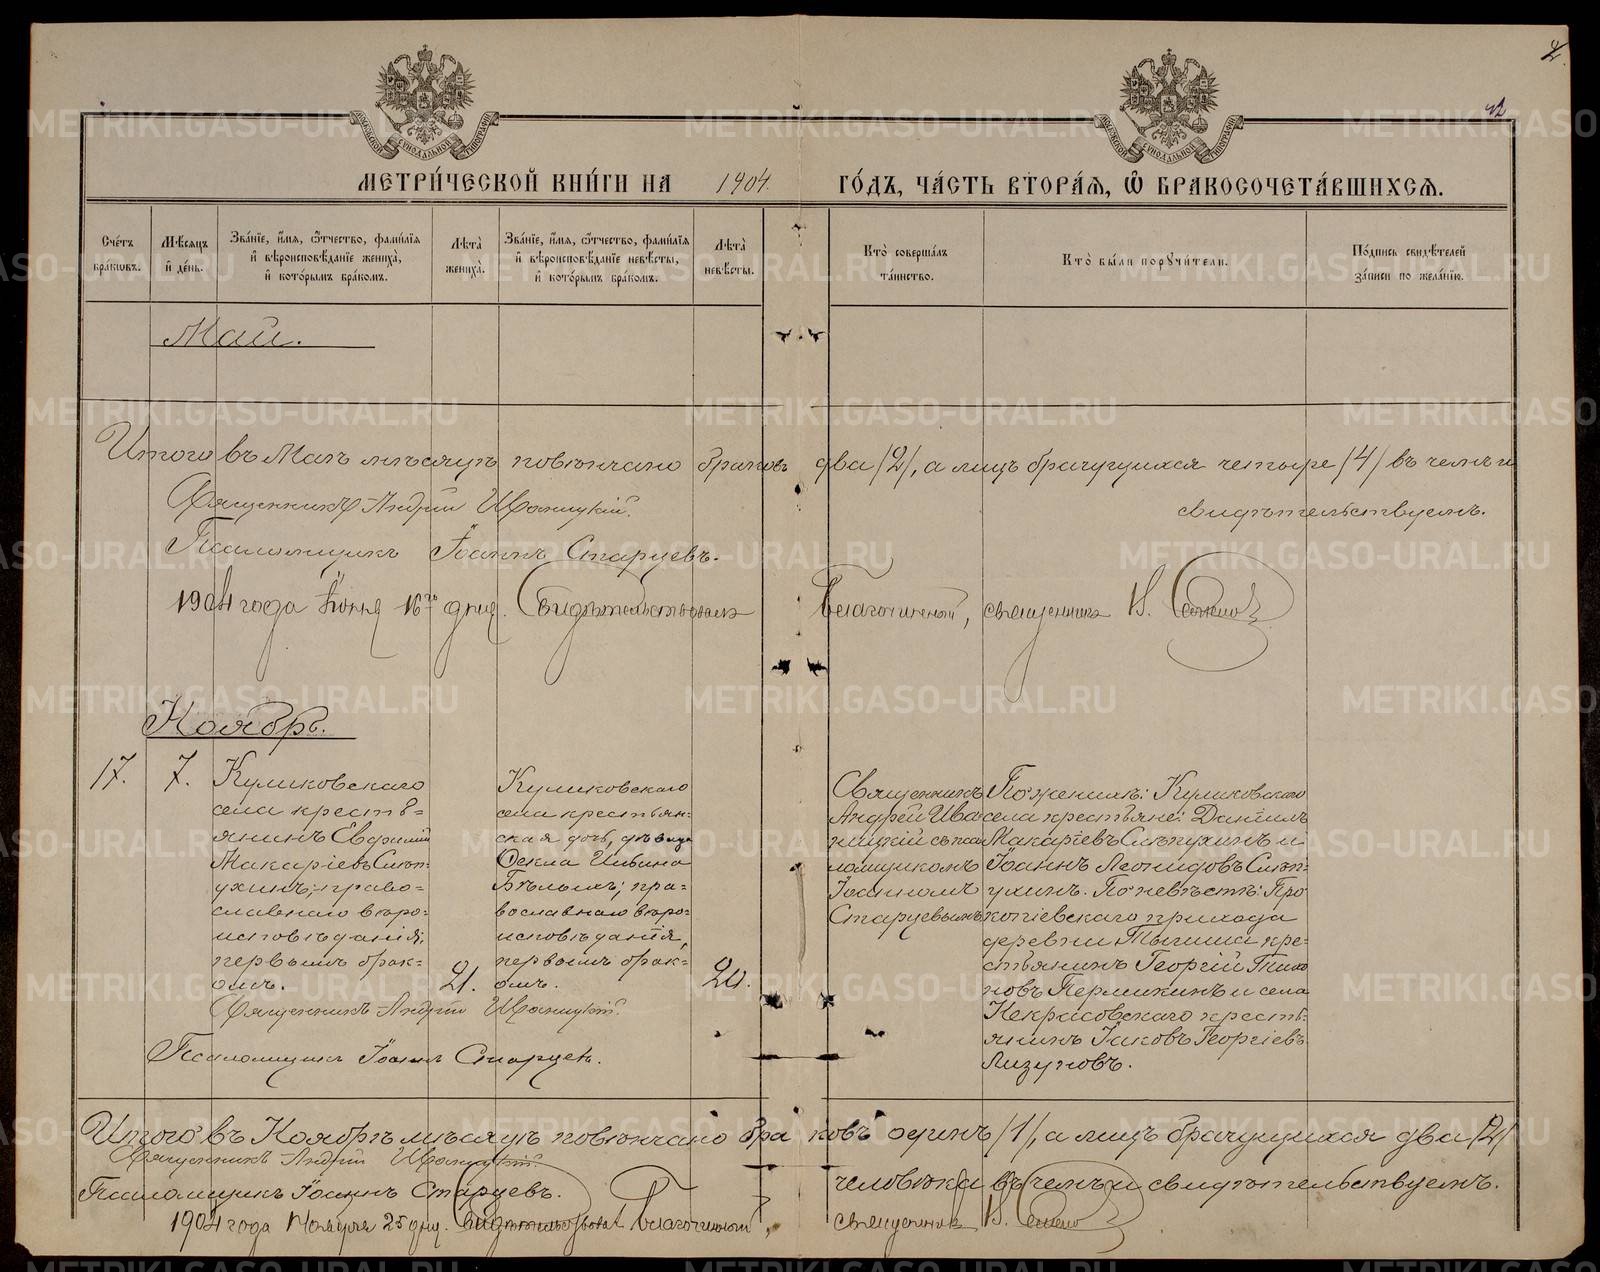 МОСКОВСКОЙ СѴНОДАЛЬНОЙ ТИПОГРАФІИ
МОСКОВСКОЙ СѴНОДАЛЬНОЙ ТИПОГРАФІИ
МЕТРИ́ЧЕСКОЙ КНИ́ГИ НА 1904 ГО́ДЪ, ЧА́СТЬ ВТОРА́Я, Ѽ БРАКОСОЧЕТА́ВШИХСЯ.
Сче́тъ бра́ковъ.
Мѣ́сяцъ и́ де́нь.
Зва́ніе, и́мя, ѻ́тчество, фами́лія и́ вѣроисповѣ́даніе жениха̀, и́ кото́рымъ бра́комъ.
Лѣта̀ жениха̀.
Зва́ніе, и́мя, ѻ́тчество, фами́лія и́ вѣроисповѣ́даніе невѣ́сты, и́ кото́рымъ бра́комъ.
Лѣта̀ невѣ́сты.
Кто̀ соверша́лъ та́инство.
Кто̀ бы́ли порꙋчи́тели.
По́дпись свидѣ́телей за́писи по жела́нію.
Май.
Итого въ Маѣ мѣсяцѣ повѣнчано браковъ два /2/, а лицъ брачущихся четыре /4/ въ чемъ и
свидѣтельствуемъ.
Священникъ Андрей Иваницкій.
Псаломщикъ Іоаннъ Старцевъ.
1904 года Іюня 16го дня. Свидѣтельствовалъ Благочинный, священникъ
Ноябрь.
17.
7.
Куликовскаго
села кресть=
янинъ Евфимій
Макаріевъ Слѣп=
ухинъ; право=
славнаго вѣро=
исповѣданія;
первымъ брак=
омъ.
21.
Куликовскаго
села крестьян=
ская дочь, дѣвица
Ѳекла Ильина
Бѣлыхъ; пра=
вославнаго вѣро=
исповѣданія,
первымъ брак=
омъ.
20.
Священникъ
Андрей Ива
ницкій съ пса
ломщикомъ
Іоанномъ
Старцевымъ
По женихѣ: Куликовскаго
села крестьяне: Даніилъ
Макаріевъ Слѣпухинъ и
Іоаннъ Леонидовъ Слѣп=
ухинъ. По невѣстѣ: Про
копіевскаго прихода
деревни кре=
стьянинъ Георгій Тихо
новъ Пермикинъ и села
Некрасовскаго кресть=
янинъ Іаковъ Георгіевъ
Лизуновъ.
Священникъ Андрей Иваницкій.
Псаломщикъ Іоаннъ Старцевъ.
Итого въ Ноябрѣ мѣсяцѣ повѣнчано браковъ одинъ /1/, а лицъ брачущихся два /2/
человѣка въ чемъ и свидѣтельствуемъ.
Священникъ Андрей Иваницкій.
Псаломщикъ Іоаннъ Старцевъ.
1904 года Ноября 25 дня. Свидѣтельствовалъ Благочинный священникъ
METRIKI.GASO-URAL.RU